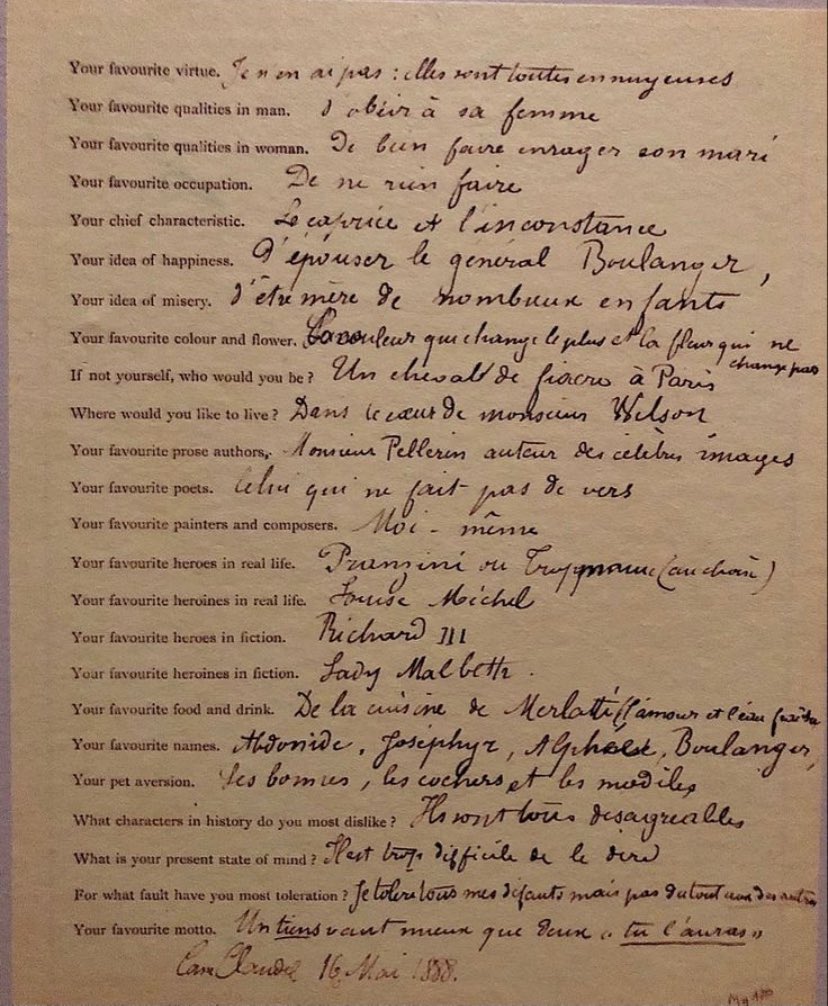 Your favourite virtue. Je n'en ai pas : elles sont toutes ennuyeuses
Your favourite qualities in man. d'obéir à sa femme
Your favourite qualities in woman. De bien faire enrager son mari
Your favourite occupation. De ne rien faire
Your chief characteristic. Le caprice et l'inconstance
Your idea of happiness. D'épouser le général Boulanger,
Your idea of misery. d'être mère de nombreux enfants
Your favourite colour and flower. La couleur qui change le plus et la fleur qui ne
change pas
If not yourself, who would you be? Un cheval de fiacre à Paris
Where would you like to live? Dans le cœur de monsieur Wilson
Your favourite prose authors. Monsieur Pellerin auteur des célèbres images
Your favourite poets. Celui qui ne fait pas de vers
Your favourite painters and composers. Moi-même
Your favourite heroes in real life. Pranzini ou Troppmann (au choix)
Your favourite heroines in real life. Louise Michel
Your favourite heroes in fiction. Richard III
Your favourite heroines in fiction. Lady Malbeth.
Your favourite food and drink. De la cuisine de Merlatti (l'amour et l'eau fraîche
Your favourite names. Abdonide, Joséphyr, Alphée, Boulanger,
Your pet aversion. Les bonnes, les cochers et les modèles
What characters in history do you most dislike? Ils sont tous désagréables
What is your present state of mind? Il est trop difficile de le dire
For what fault have you most toleration? Je tolère tous mes défauts mais pas du tout ceux des autres
Your favourite motto. Un tiens vaut mieux que deux « tu l'auras »
Cam Claudel 16 Mai 1888.